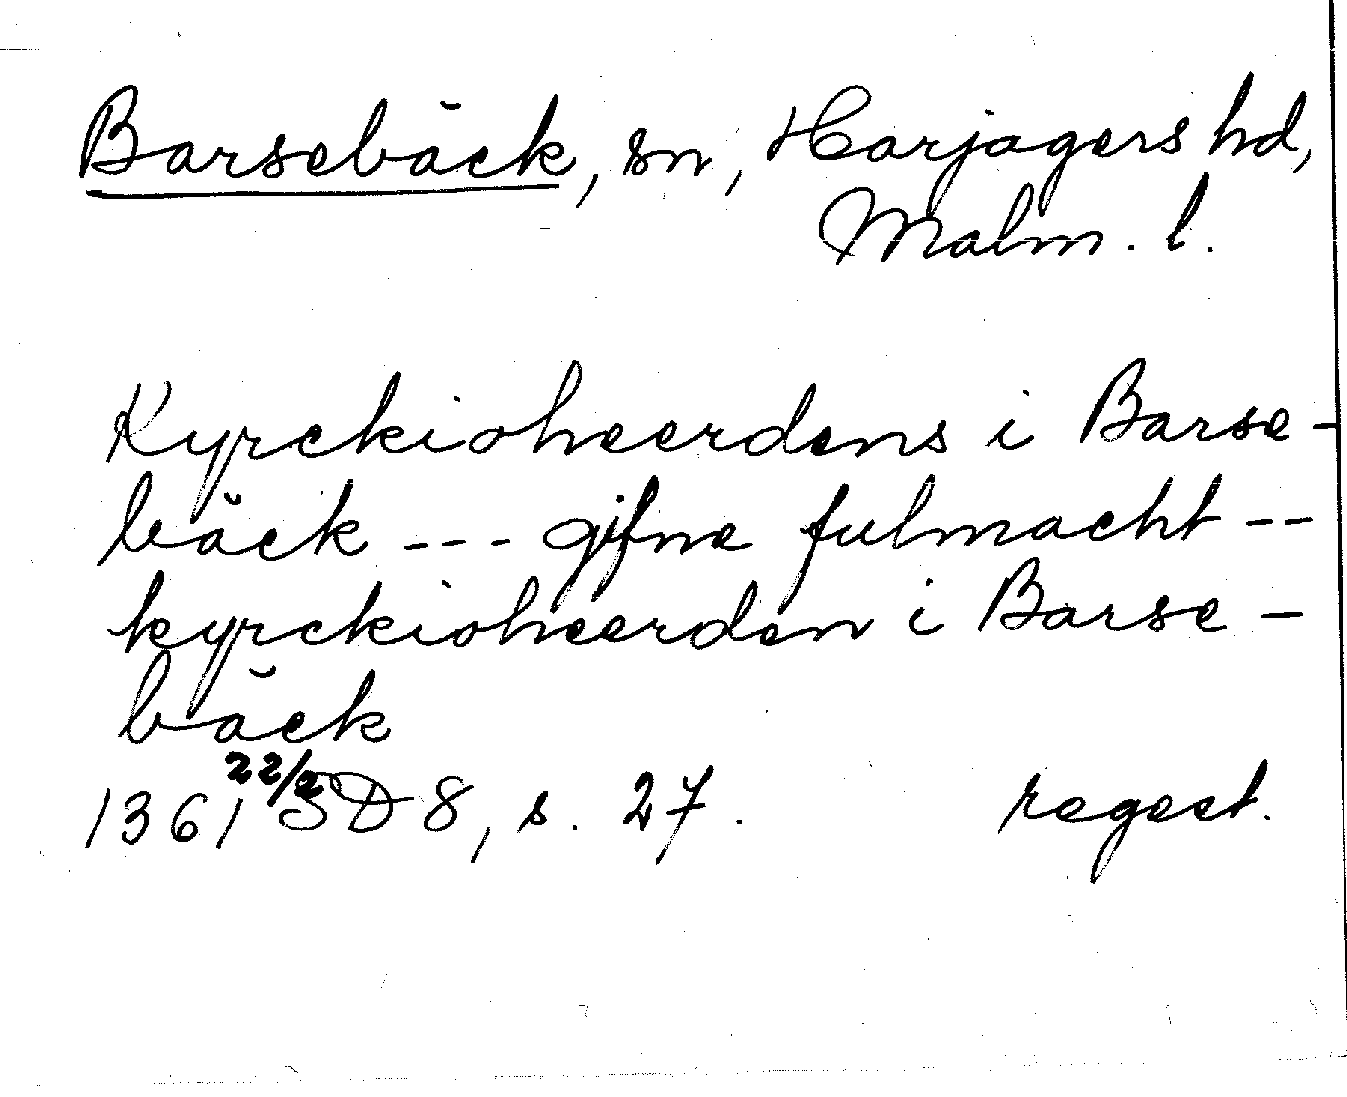 Barsebäck, sn, Harjagers hd,
Malm. l.
Kyrckioheerdens i Barse-
bäck --- gifne fulmacht --
kyrckioheerden i Barse-
bäck
1361 22/2 SD 8, s. 27. regest.